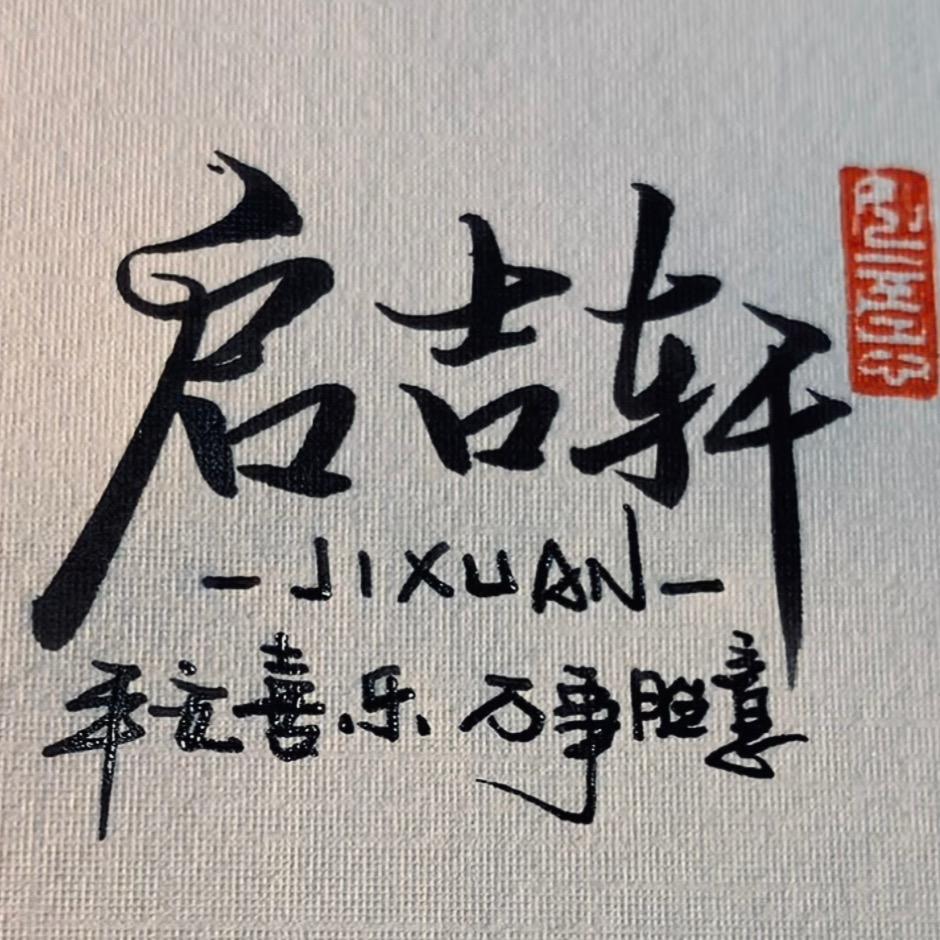 启吉轩
-JIXUAN-
平安喜乐 万事胜意